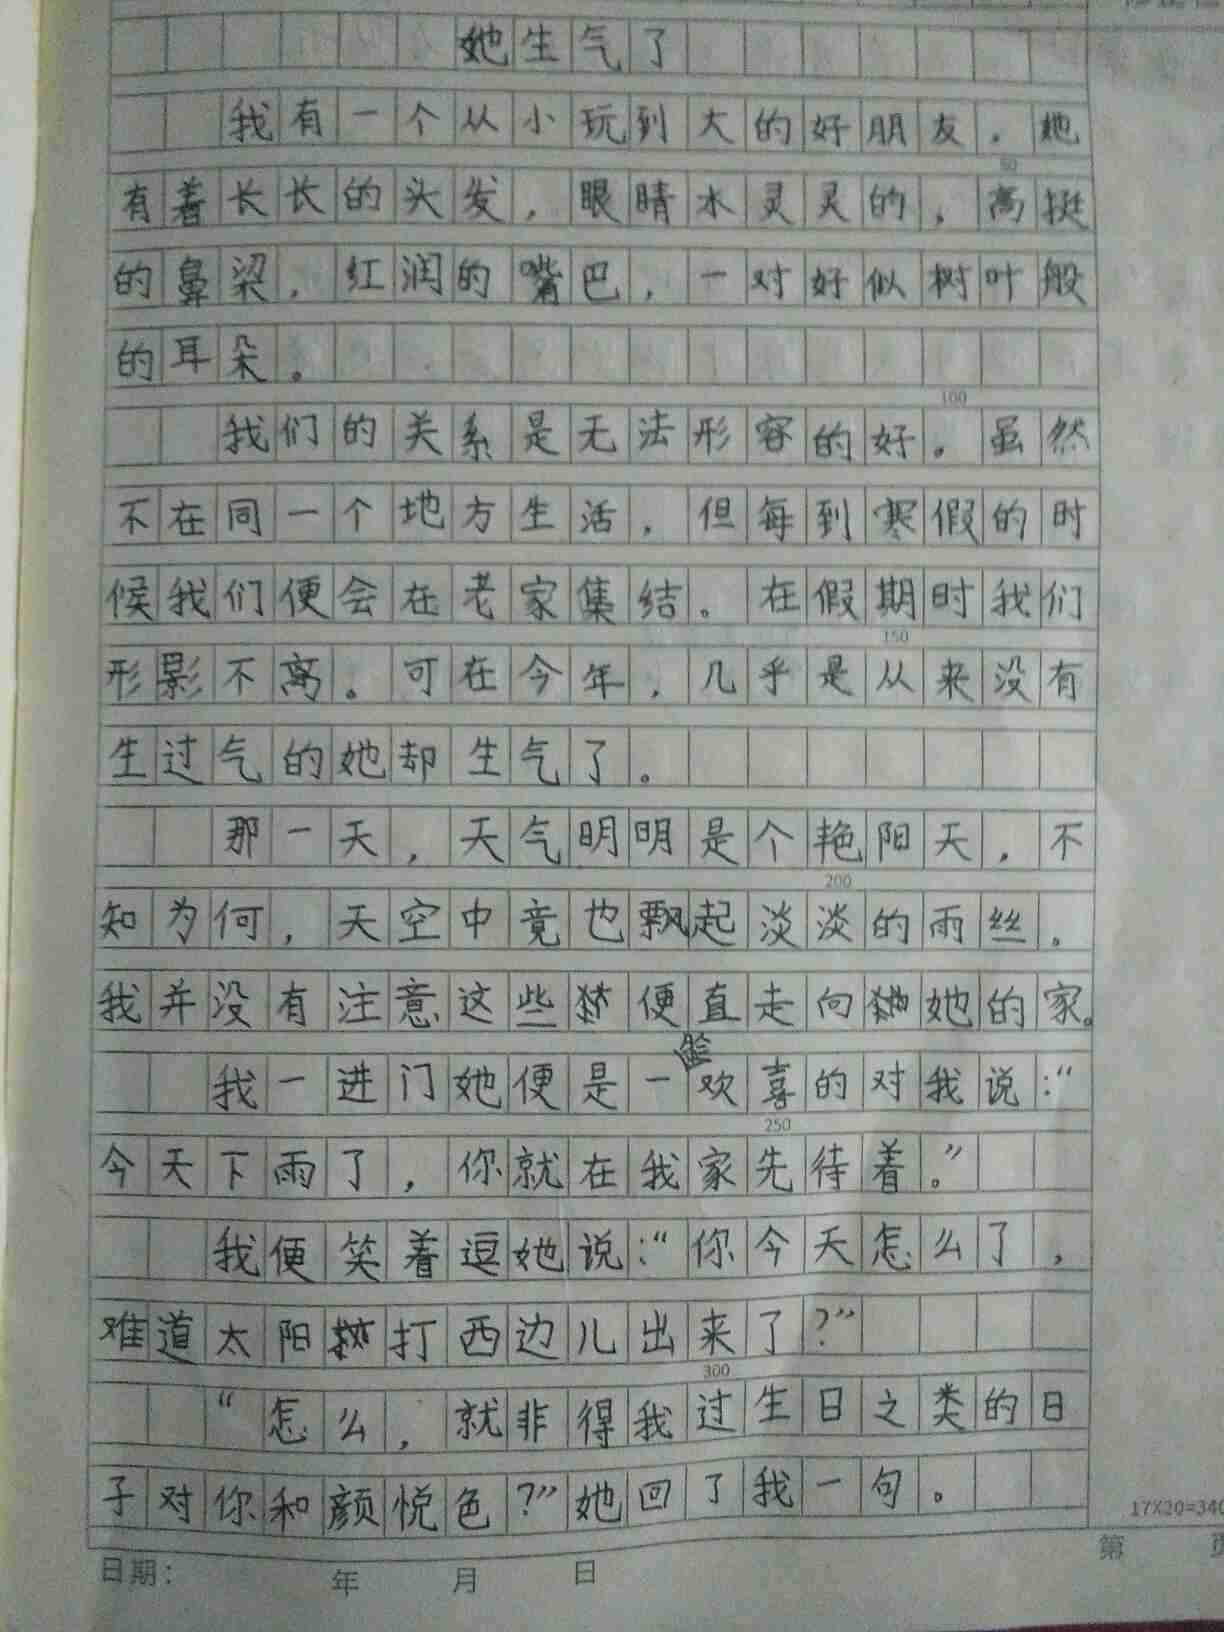 她生气了
我有一个从小玩到大的好朋友，她
有着长长的头发，眼睛水灵灵的，高挺
的鼻梁，红润的嘴巴，一对好似树叶般
的耳朵。
我们的关系是无法形容的好。虽然
不在同一个地方生活，但每到寒假的时
候我们便会在老家集结。在假期时我们
形影不离。可在今年，几乎是从来没有
生过气的她却生气了。
那一天，天气明明是个艳阳天，不
知为何，天空中竟也飘起淡淡的雨丝。
我并没有注意这些便直走向她的家。
我一进门她便是一脸欢喜的对我说：“
今天下雨了，你就在我家先待着。”
我便笑着逗她说：“你今天怎么了，
难道太阳打西边儿出来了？”
“怎么，就非得我过生日之类的日
子对你和颜悦色？”她回了我一句。
50
100
150
200
250
300
17X20=340
日期： 年 月 日
第